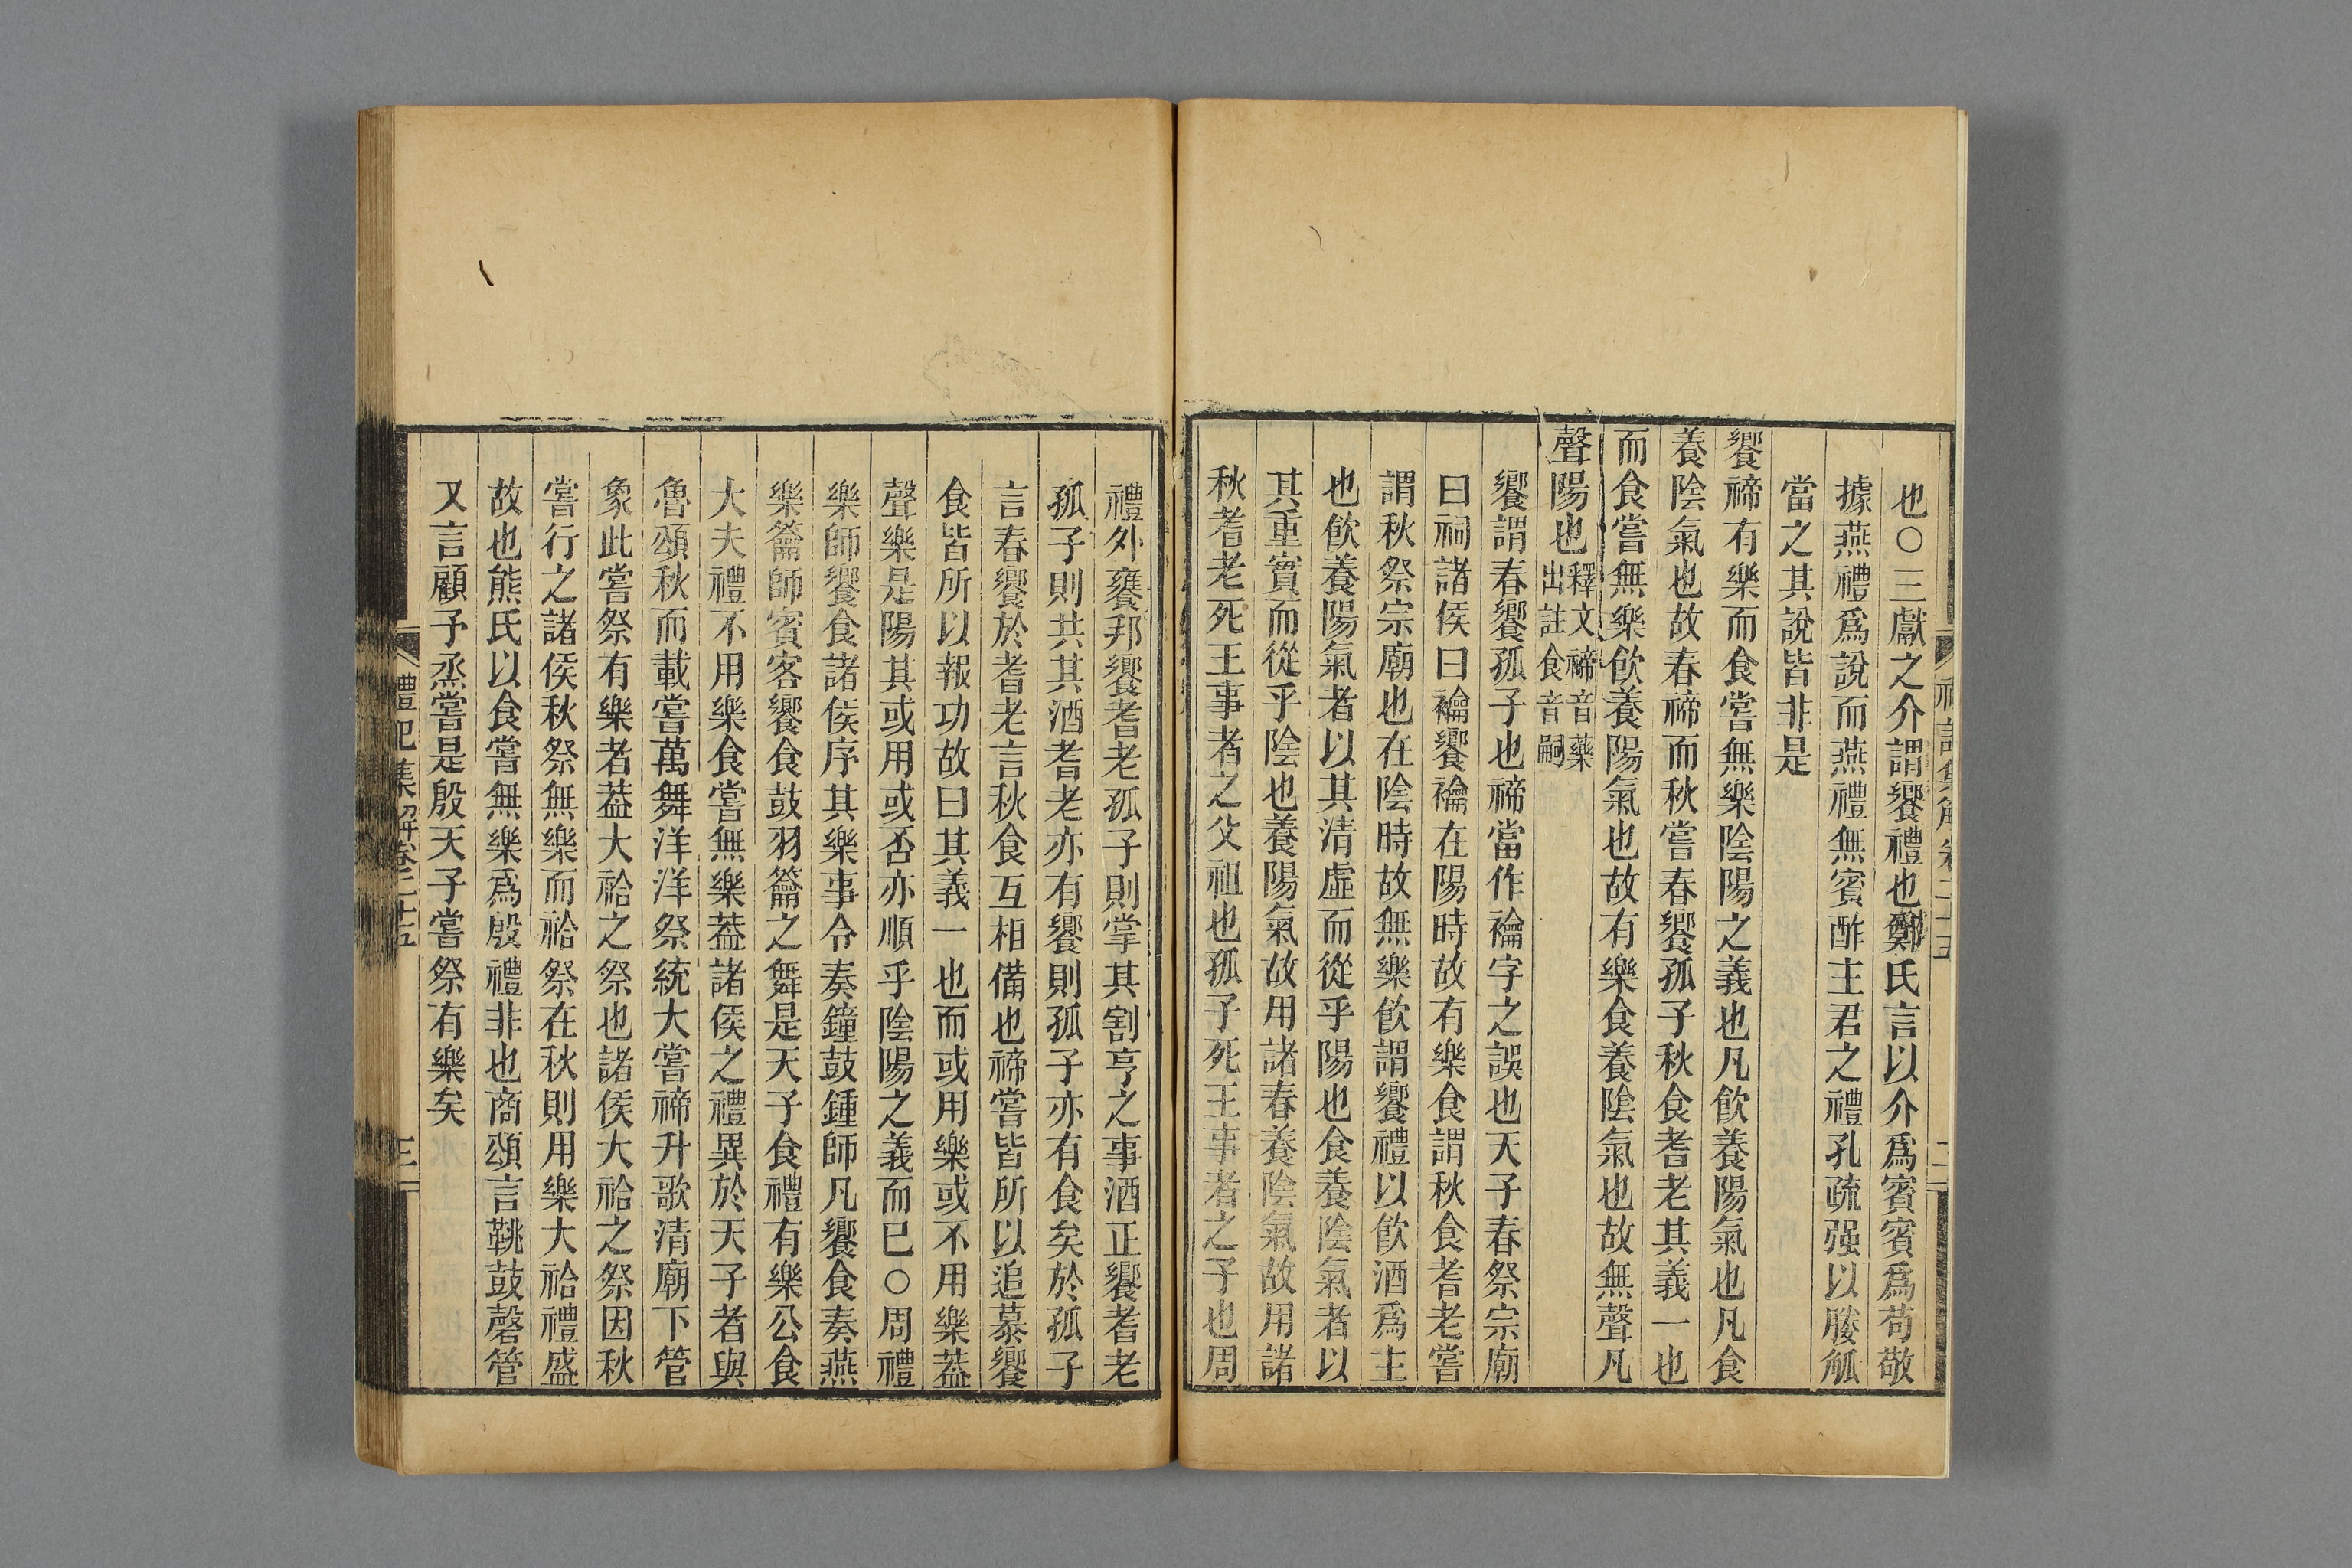 也○三獻之介謂饗禮也鄭氏言以介爲賓賓爲苟敬
據燕禮爲說而燕禮無賓酢主君之禮孔疏强以媵觚
當之其說皆非是
饗禘有樂而食嘗無樂陰陽之義也凡飮養陽氣也凡食
養陰氣也故春禘而秋嘗春饗孤子秋食耆老其義一也
而食嘗無樂飮養陽氣也故有樂食養陰氣也故無聲凡
聲陽也釋文禘音藥
出註食音嗣
饗謂春饗孤子也禘當作禴字之誤也天子春祭宗廟
曰祠諸侯曰禴饗禴在陽時故有樂食謂秋食耆老嘗
謂秋祭宗廟也在陰時故無樂飮謂饗禮以飮酒爲主
也飮養陽氣者以其清虛而從乎陽也食養陰氣者以
其重實而從乎陰也養陽氣故用諸春養陰氣故用諸
秋耆老死王事者之父祖也孤子死王事者之子也周
禮外饔邦饗耆老孤子則掌其割亨之事酒正饗耆老
孤子則共其酒耆老亦有饗則孤子亦有食矣於孤子
言春饗於耆老言秋食互相備也禘嘗皆所以追慕饗
食皆所以報功故曰其義一也而或用樂或不用樂葢
聲樂是陽其或用或否亦順乎陰陽之義而已○周禮
樂師饗食諸侯序其樂事令奏鐘鼓鍾師凡饗食奏燕
樂籥師賓客饗食鼓羽籥之舞是天子食禮有樂公食
大夫禮不用樂食嘗無樂葢諸侯之禮異於天子者與
魯頌秋而載嘗萬舞洋洋祭統大嘗禘升歌清廟下管
象此嘗祭有樂者葢大祫之祭也諸侯大祫之祭因秋
嘗行之諸侯秋祭無樂而祫祭在秋則用樂大祫禮盛
故也熊氏以食嘗無樂爲殷禮非也商頌言鞉鼓磬管
又言顧予烝嘗是殷天子嘗祭有樂矣
禮記集解卷二十五
三